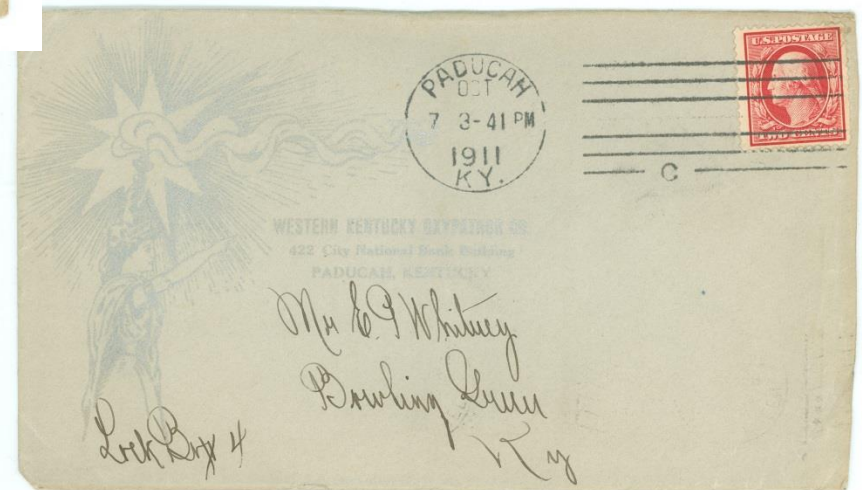 U.S. POSTAGE
PADUCAH
OCT
7 3-41 PM
1911
KY.
C
TWO CENTS
WESTERN KENTUCKY OXYPATHOR CO.
422 City National Bank Building
PADUCAH, KENTUCKY
Mr E. P Whitney
Bowling Green
Ky
Lock Box 4